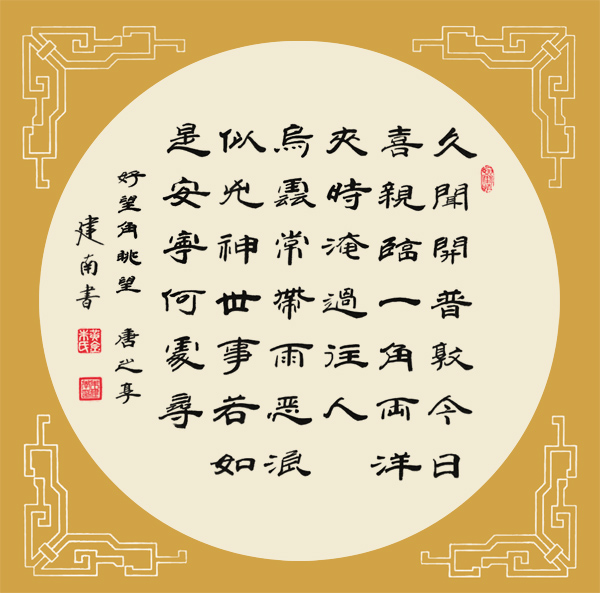 久聞開普敦今日
喜親臨一角兩洋
夾時淹過往人
烏雲常帶雨惡浪
似兇神世事若如
是安寧何處尋
好望角眺望 唐之享
建南書